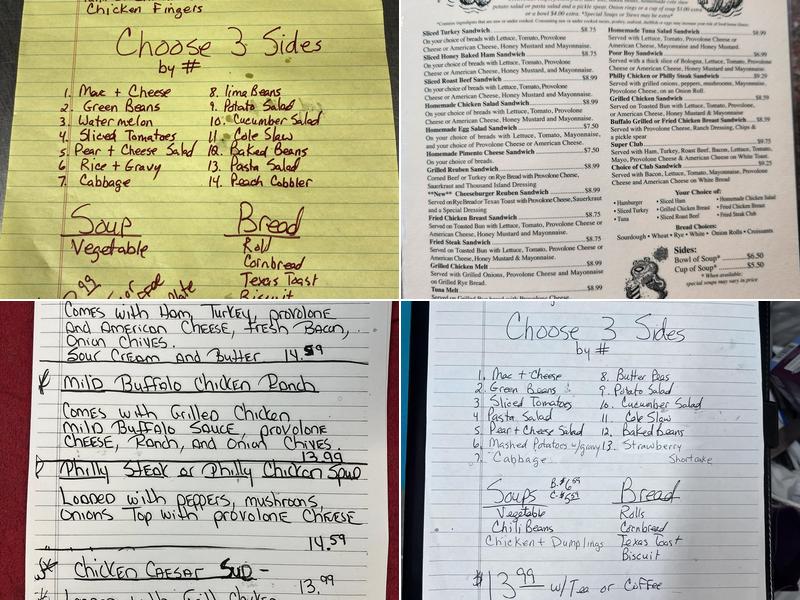 Chicken Fingers
Choose 3 Sides
by #
1. Mac + Cheese
2. Green Beans
3. Watermelon
4. Sliced Tomatoes
5. Pear + Cheese Salad
6. Rice + Gravy
7. Cabbage
8. lima Beans
9. Potato Salad
10. Cucumber Salad
11. Cole Slaw
12. Baked Beans
13. Pasta Salad
14. Peach Cobbler
Soup
Vegetable
Bread
Roll
Cornbread
Texas Toast
Biscuit
potato salad or pasta salad and a pickle spear. Onion rings or a cup of soup $3.00 extra
or a bowl $4.00 extra. *Special Soups or Stews may be extra*
Sliced Turkey Sandwich $8.75
On your choice of breads with Lettuce, Tomato, Provolone
or American Cheese, Honey Mustard and Mayonnaise.
Sliced Honey Baked Ham Sandwich $8.75
On your choice of breads with Lettuce, Tomato, Provolone
Cheese or American Cheese, Honey Mustard and Mayonnaise.
Sliced Roast Beef Sandwich $8.99
On your choice of breads with Lettuce, Tomato, Provolone
Cheese or American Cheese, Honey Mustard and Mayonnaise.
Homemade Chicken Salad Sandwich $8.99
On your choice of breads with Lettuce, Tomato, Provolone
Cheese or American Cheese, Honey Mustard and Mayonnaise.
Homemade Egg Salad Sandwich $7.50
On your choice of breads with Lettuce, Tomato, Mayonnaise,
and your choice of Cheese.
Homemade Pimento Cheese Sandwich $7.50
On your choice of breads.
Grilled Reuben Sandwich $8.99
Corned Beef or Turkey on Rye Bread with Provolone Cheese,
Sauerkraut and Thousand Island Dressing
**New** Cheeseburger Reuben Sandwich $8.99
Served on Rye Bread or Texas Toast with Provolone Cheese, Sauerkraut
and a Special Dressing
Fried Chicken Breast Sandwich $8.75
Served on Toasted Bun with Lettuce, Tomato, Provolone or
American Cheese, Honey Mustard and Mayonnaise.
Fried Steak Sandwich $8.75
Served on Toasted Bun with Lettuce, Tomato, Provolone or
American Cheese, Honey Mustard and Mayonnaise.
Grilled Chicken Melt $8.99
Served with Grilled Onions, Provolone Cheese, and Mayonnaise
on Grilled Rye Bread.
Tuna Melt $8.99
Homemade Tuna Salad Sandwich $8.99
Served with Lettuce, Tomato, Provolone Cheese or
American Cheese, Mayonnaise and Honey Mustard.
Poor Boy Sandwich $6.99
Served with a thick slice of Bologna, Lettuce, Tomato, Provolone
Cheese or American Cheese, Honey Mustard and Mayonnaise.
Philly Chicken or Philly Steak Sandwich $9.29
Served with grilled onions, peppers, mushrooms, Mayonnaise,
Provolone, on an Onion Roll.
Grilled Chicken Sandwich $8.59
Served on Toasted Bun with Lettuce, Tomato, Provolone,
or American Cheese, Honey Mustard & Mayonnaise
Buffalo Grilled or Fried Chicken Breast Sandwich $8.99
Served with Provolone Cheese, Ranch Dressing, Chips &
a pickle spear
Super Club $9.75
Served with Ham, Turkey, Roast Beef, Bacon, Lettuce, Tomato,
Mayo, Provolone Cheese & American Cheese on White Toast.
Choice of Club Sandwich $9.25
Served with Bacon, Lettuce, Tomato, Mayonnaise, Provolone
Cheese and American Cheese on White Bread
Your Choice of:
• Hamburger • Sliced Ham • Homemade Chicken Salad
• Sliced Turkey • Grilled Chicken Breast • Fried Chicken Breast
• Tuna • Sliced Roast Beef • Fried Steak Club
Bread Choices:
Sourdough • Wheat • Rye • White • Onion Rolls • Croissants
Sides:
Bowl of Soup* $6.50
Cup of Soup* $5.50
* When available:
special soups may vary in price
Comes with Ham, Turkey, provolone
and American Cheese, Fresh Bacon,
Onion Chives.
Sour Cream and Butter 14.59
Mild Buffalo Chicken Ranch
Comes with Grilled Chicken
Mild Buffalo Sauce, provolone
Cheese, Ranch, and Onion Chives.
13.99
Philly Steak or Philly Chicken Spud
Loaded with peppers, mushrooms,
Onions Top with provolone Cheese
14.59
Chicken Caesar Sud -
13.99
Choose 3 Sides
by #
1. Mac + Cheese
2. Green Beans
3 Sliced Tomatoes
4 Pasta Salad
5. Pear + Cheese Salad
6. Mashed Potatoes w/gravy
7. Cabbage
8. Butter Peas
9. Potato Salad
10. Cucumber Salad
11. Cole Slaw
12. Baked Beans
13. Strawberry
Shortcake
Soups B-$6.59
C-$5.59
Vegetable
Chili Beans
Chicken + Dumplings
Bread
Rolls
Cornbread
Texas Toast
Biscuit
$13.99 w/Tea or Coffee